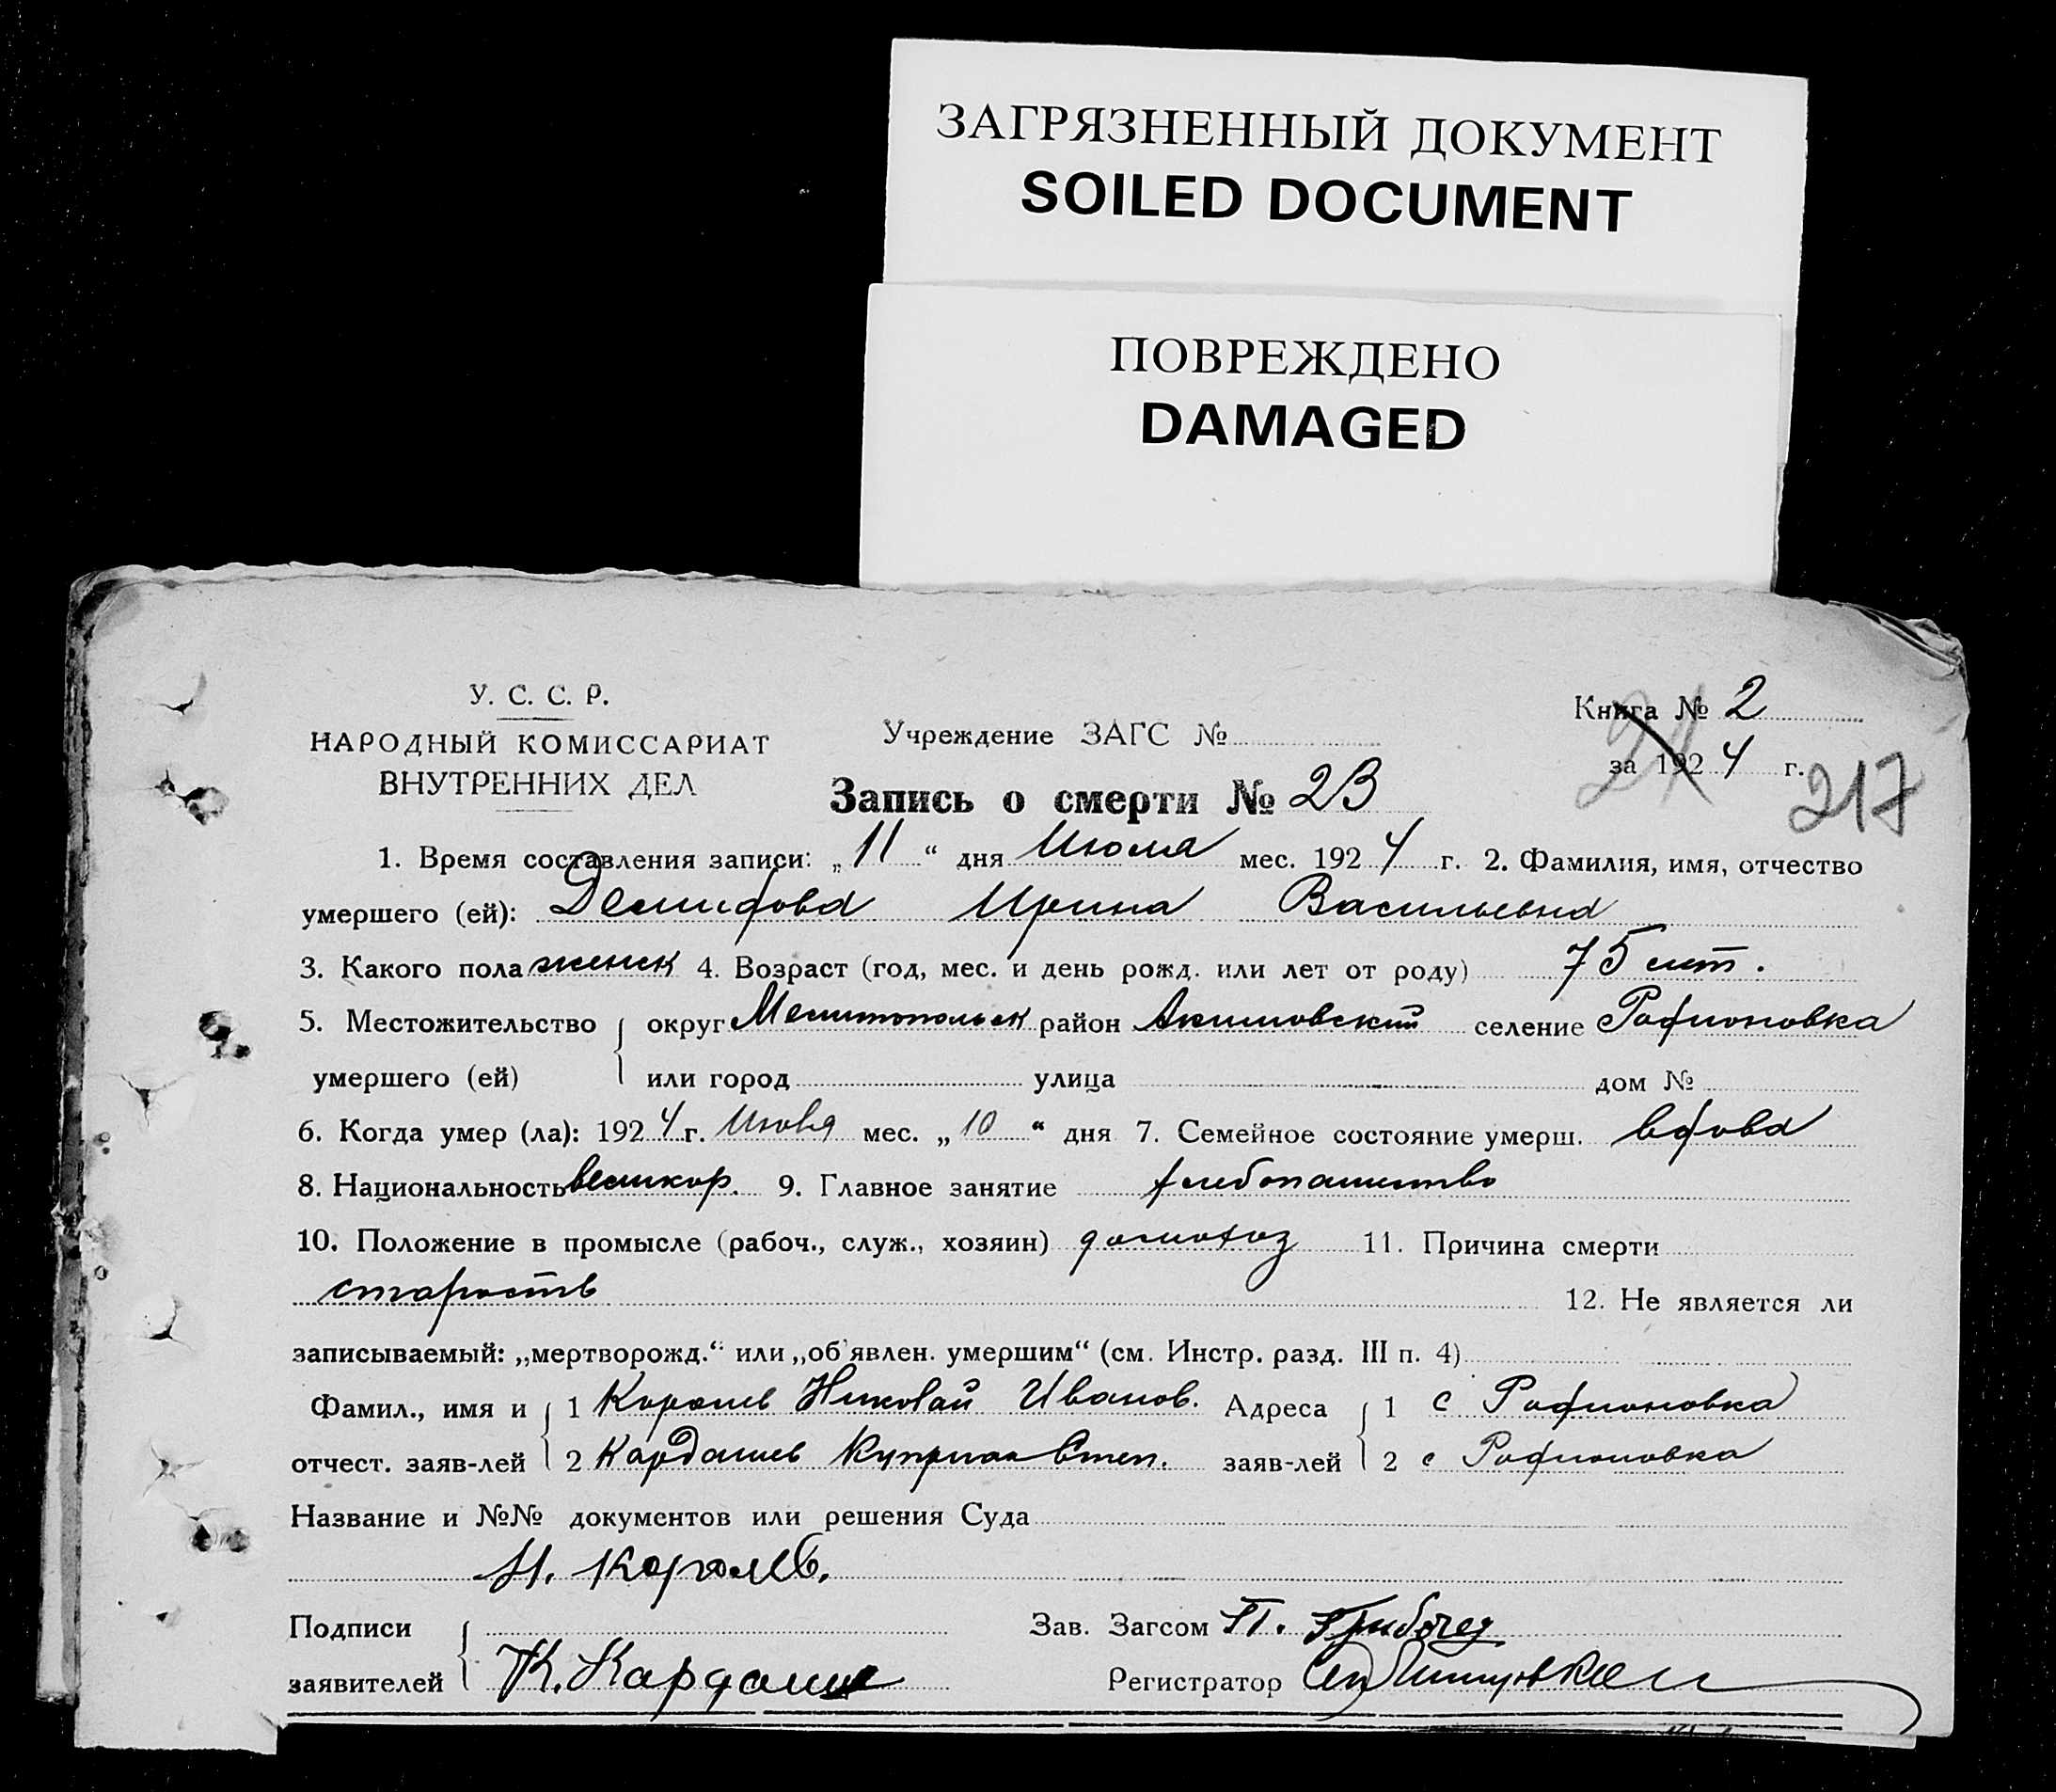 ЗАГРЯЗНЕННЫЙ ДОКУМЕНТ
SOILED DOCUMENT
ПОВРЕЖДЕНО
DAMAGED
У. С. С. Р.
НАРОДНЫЙ КОМИССАРИАТ
ВНУТРЕННИХ ДЕЛ
Учреждение ЗАГС №
Книга № 2
за 1924 г.
217
Запись о смерти № 23
1. Время составления записи: „11“ дня Июля мес. 1924 г. 2. Фамилия, имя, отчество
умершего (ей): Демидова Ирина Васильевна
3. Какого пола женск 4. Возраст (год, мес. и день рожд. или лет от роду) 75 лет.
5. Местожительство округ Мелитопольск район Акимовский селение Родионовка
умершего (ей) или город улица дом №
6. Когда умер (ла): 1924 г. мес. „10“ дня 7. Семейное состояние умерш. вдова
8. Национальность великор. 9. Главное занятие хлебопашество
10. Положение в промысле (рабоч., служ., хозяин) домохоз 11. Причина смерти
старость 12. Не является ли
записываемый: „мертворожд.“ или „об'явлен. умершим“ (см. Инстр. разд. III п. 4)
Фамил., имя и 1 Королев Николай Иванов. Адреса 1 с Родионовка
отчест. заяв-лей 2 Кардашев Куприян Степ. заяв-лей 2 с Родионовка
Название и №№ документов или решения Суда
Н. Королев.
Подписи Зав. Загсом П.
заявителей К. Кардаш Регистратор